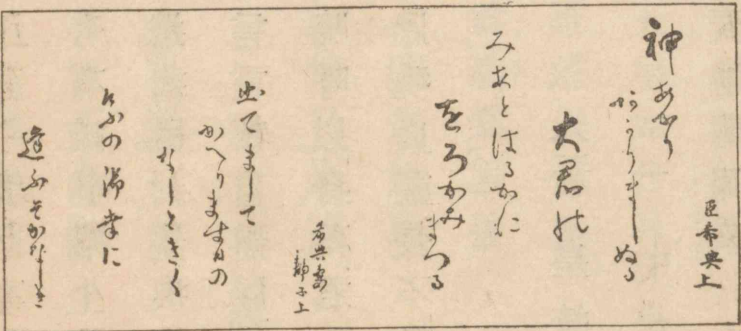 臣希典上
神あかり
あかりましぬる
大君の
みあとはるかに
をろかみ
まつる
希典妻
静子上
出てまして
かへります日の
なしときく
けふの御幸に
逢ふそかなしき